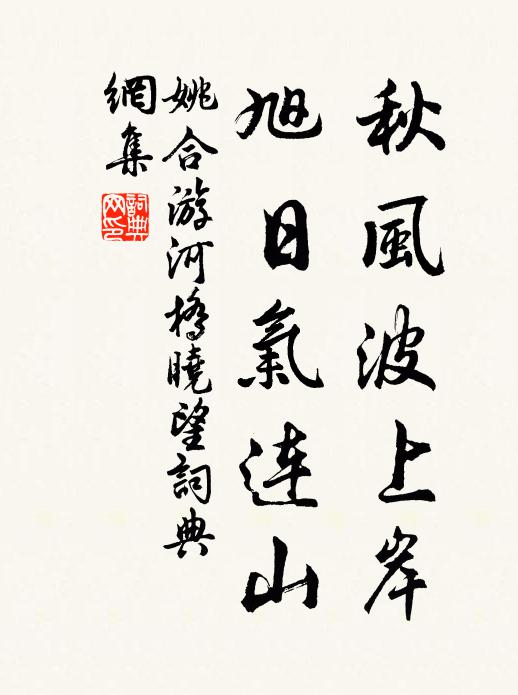 秋風波上岸
旭日氣連山
姚合游河橋曉望詞典
網集
詞典
网印